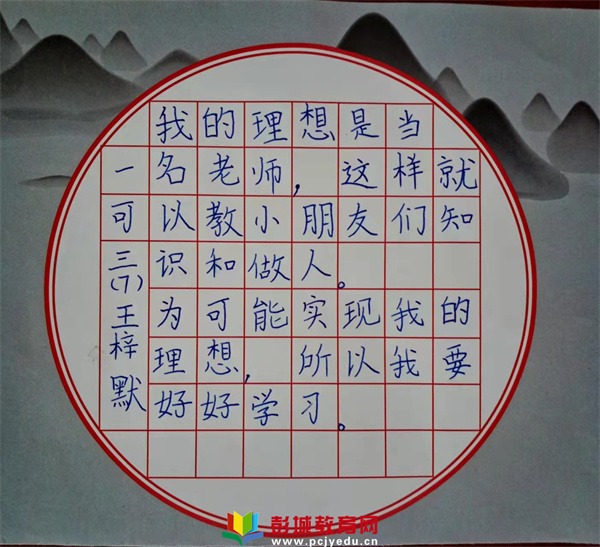 我的理想是当
一名老师，这样就
可以教小朋友们知
识和做人。
为可能实现我的
理想，所以我要
好好学习。
三(7)王梓默
彭城教育网
www.pcjyedu.cn